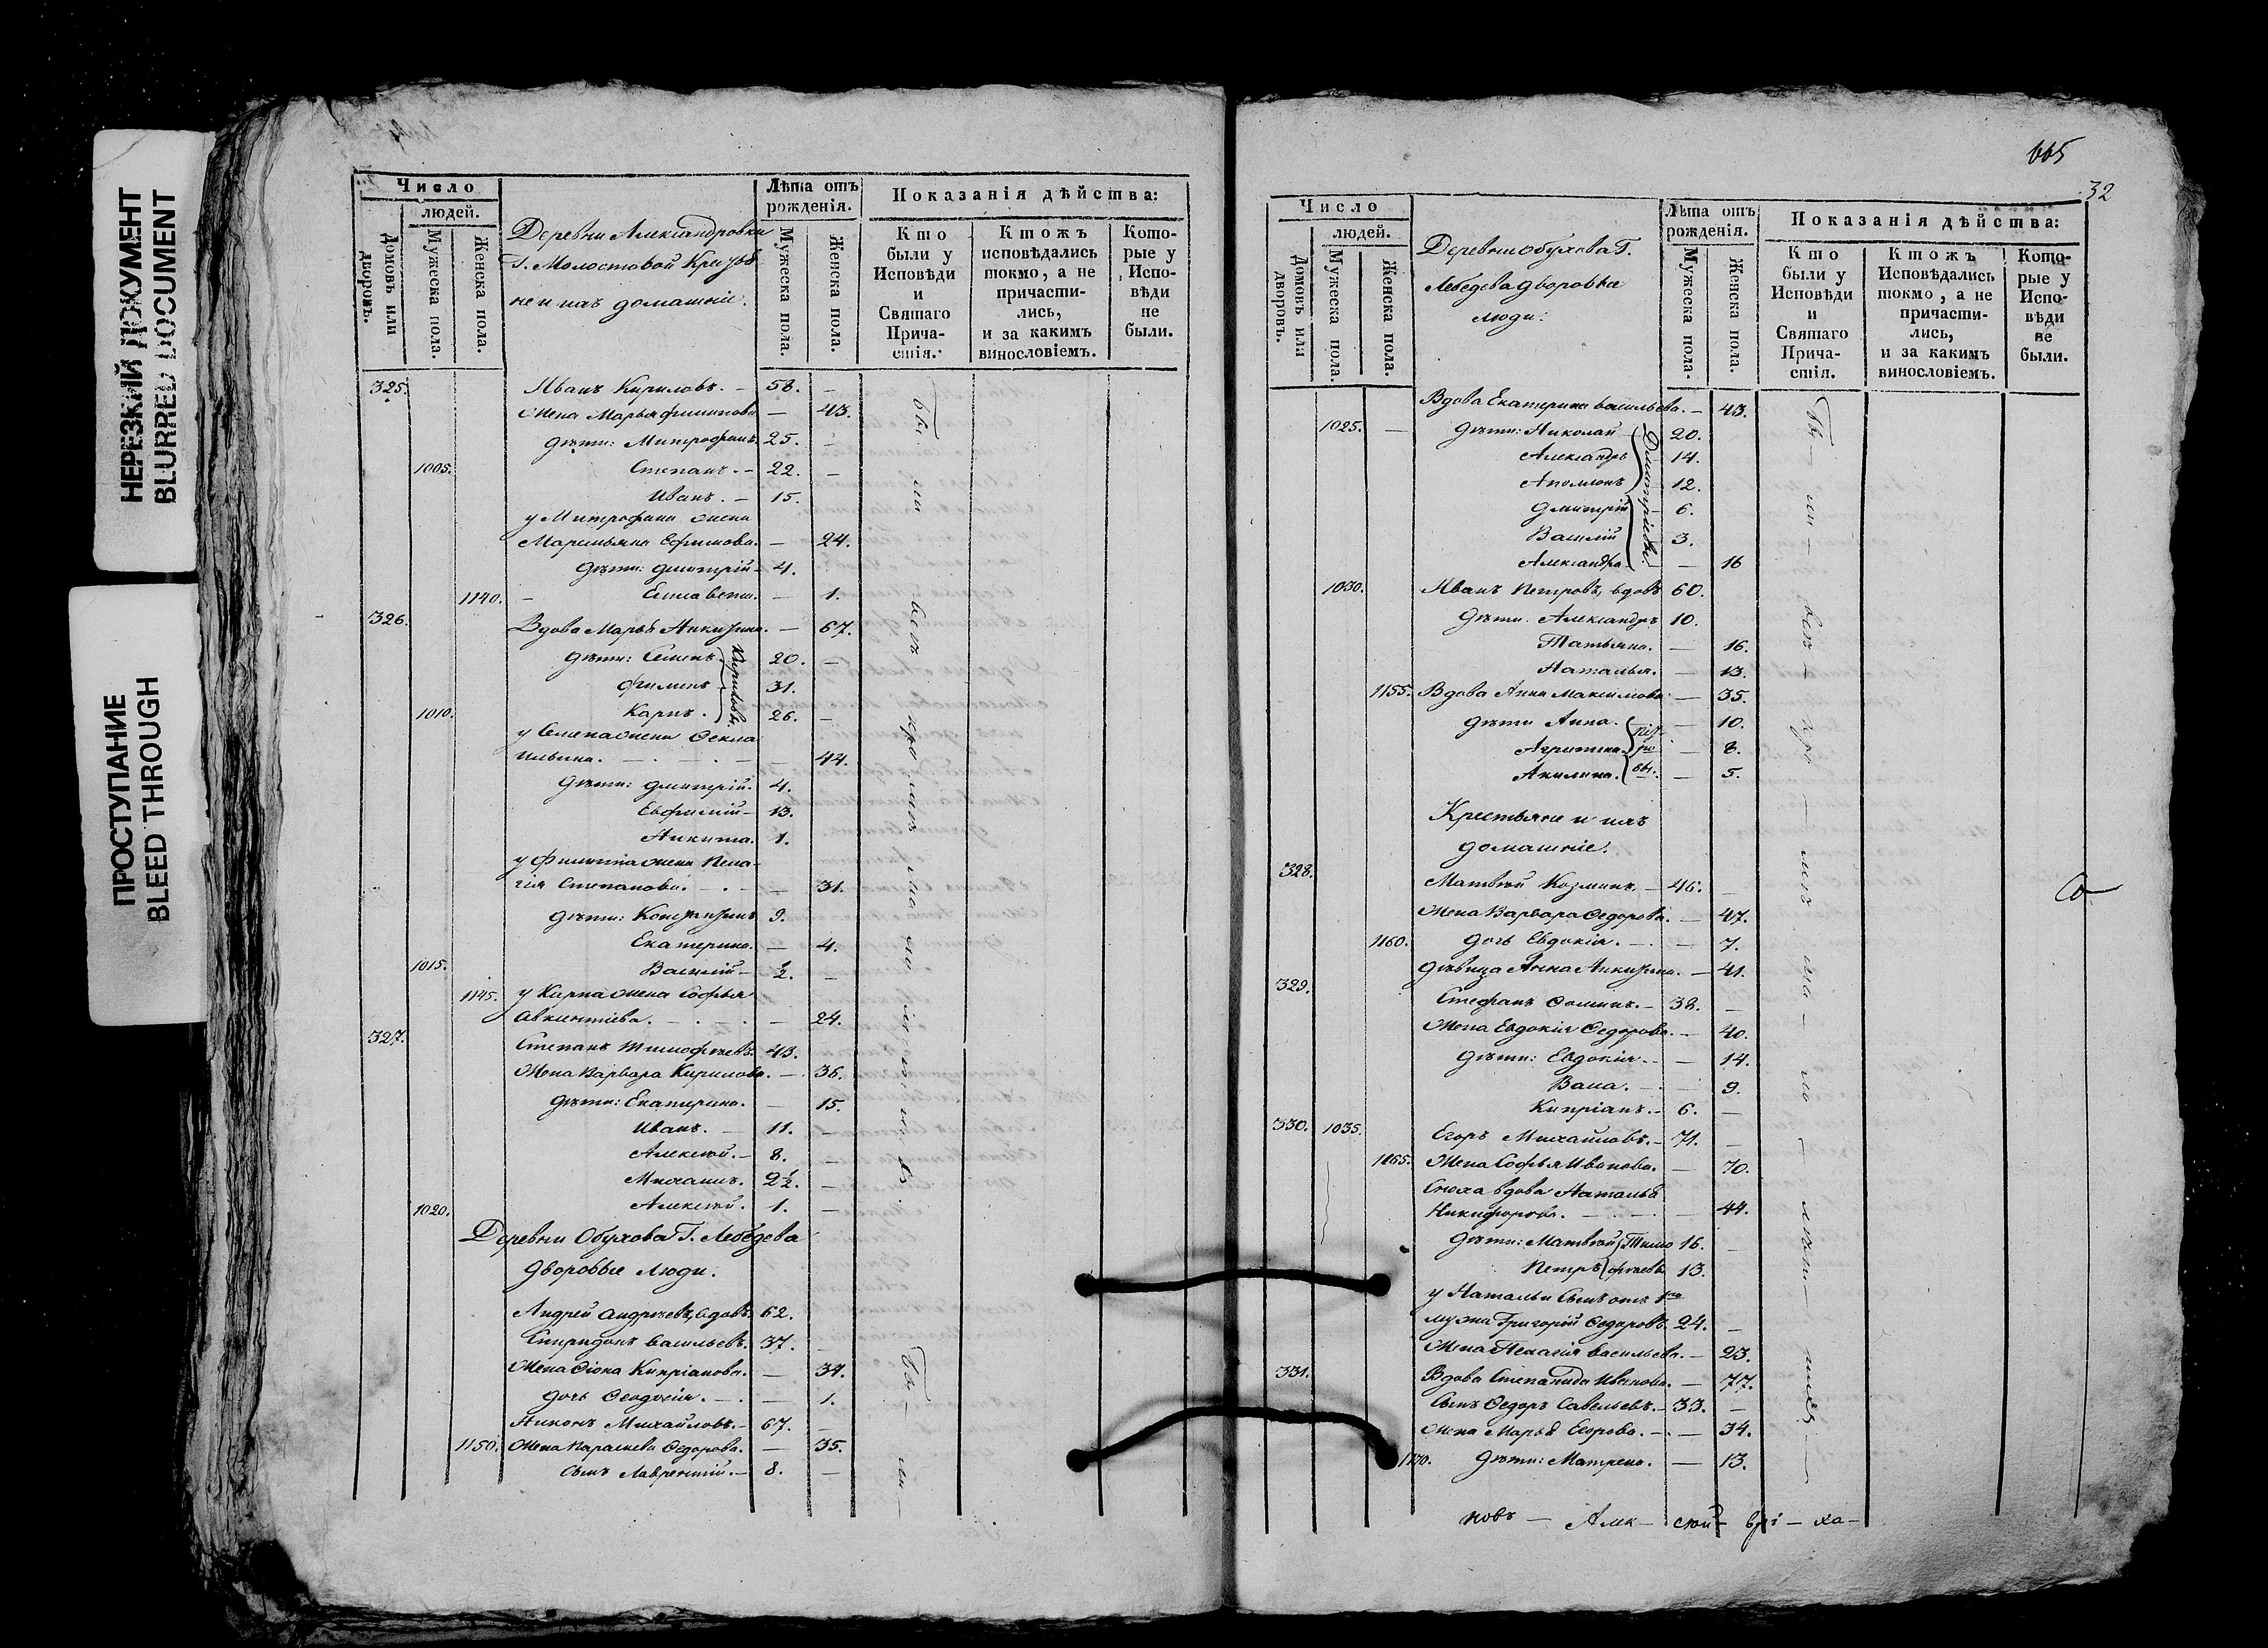 НЕРЕЗКИЙ ДОКУМЕНТ
BLURRED DOCUMENT
ПРОСТУПАНИЕ
BLEED THROUGH
Число
людей.
Домовъ или дворовъ.
Мужеска пола.
Женска пола.
Деревни Александровки
Г. Молостовой Кресть
не и ихъ домашніе.
Лѣта отъ рожденія.
Мужеска пола.
Женска пола.
Показанія дѣйства:
Кто были у Исповѣди и Святаго Причастія.
Ктожъ исповѣдались токмо, а не причастились, и за какимъ винословіемъ.
Которые у Исповѣди не были.
325. Иванъ Кириловъ. – 58. –
Жена Марья Филипова – 43.
дѣти: Митрофанъ. 25. –
1005. Степанъ. – 22. –
Иванъ. – 15.
у Митрофана жена
Маримьяна Ефимова. – 24.
дѣти: Дмитрій – 4.
1140. – Елисавета. – 1.
326. Вдова Марья Никитина. – 67.
дѣти: Семенъ 20. –
Филипъ 31.
1010. Карпъ. 26. –
Кириловы.
у Семена жена Фекла
Ильина. – 44.
дѣти: Дмитрій. 4.
Евфимій – 13.
Никита. 1.
у Филиппа жена Пела-
гія Степанова. – 31.
дѣти: Констянтинъ 9.
Екатерина. – 4.
1015. Василій – ½. –
1145. у Карпа жена Софья
Авксентіева. – 24.
327. Степанъ Тимофѣевъ. 43.
Жена Варвара Кирилова. – 36.
дѣти: Екатерина. – 15.
Иванъ. – 11. –
Алексѣй. – 8. –
Михаилъ. 2½. –
1020. Алексѣй. 1. –
Деревни Обухова Г. Лебедева
дворовые люди.
Андрей Андрѣевъ, вдовъ. 62.
Спиридонъ Васильевъ. 37. –
Жена Фіона Кипріанова. – 34.
дочь Феодосія. – 1.
Никонъ Михайловъ. – 67. –
1150. Жена Параскева Федорова. – 35.
сынъ Лаврентій. – 8. –
Бы ли всѣ кро мѣ ма ло лѣт ныхъ.
Бы – ли –
665
32
Число
людей.
Домовъ или дворовъ.
Мужеска пола.
Женска пола.
Деревни Обухова Г.
Лебедева дворовые
люди:
Лѣта отъ рожденія.
Мужеска пола.
Женска пола.
Показанія дѣйства:
Кто были у Исповѣди и Святаго Причастія.
Ктожъ Исповѣдались токмо, а не причастились, и за какимъ винословіемъ.
Которые у Исповѣди не были.
Вдова Екатерина Васильева. – 43.
1025. – дѣти: Николай 20.
Александръ 14.
Аполлонъ 12.
Дмитрій – 6.
Василій 3.
Александра – 16
Дмитріевы.
1030. Иванъ Петровъ, вдовъ 60.
дѣти. Александръ 10.
Татьяна. – 16.
Наталья. – 13.
1155. Вдова Анна Максимова – 35.
дѣти Анна. – 10.
– 8.
Акилина. – 5.
Крестьяне и ихъ
домашніе.
328. Матвѣй Козминъ. – 46. –
Жена Варвара Федорова. – 47.
1160. дочь Евдокія. – 7.
дѣвица Анна Никитина. – 41.
329. Стефанъ Фоминъ. – 38. –
Жена Евдокія Федорова. – 40.
дѣти: Евдокія. – 14.
Васа. – 9.
Кипріанъ. – 6. –
330. 1035. Егоръ Михайловъ. – 71. –
1165. Жена Софья Иванова. – 70.
Сноха вдова Наталья
Никифорова. – 44.
дѣти: Матвѣй Тимо 16. –
Петръ фѣевы 13.
у Натальи сынъ отъ 1го
мужа Григорій Федоровъ. 24. –
Жена Пелагія Васильева. – 23.
331. Вдова Степанида Иванова. – 77.
Сынъ Федоръ Савельевъ. – 33. –
Жена Марья Егорова. – 34.
1170. дѣти: Матрена. – 13.
Бы – ли – всѣ – кро – мѣ – ма – ло – лѣт – ныхъ –
новъ – Алек – сѣй –